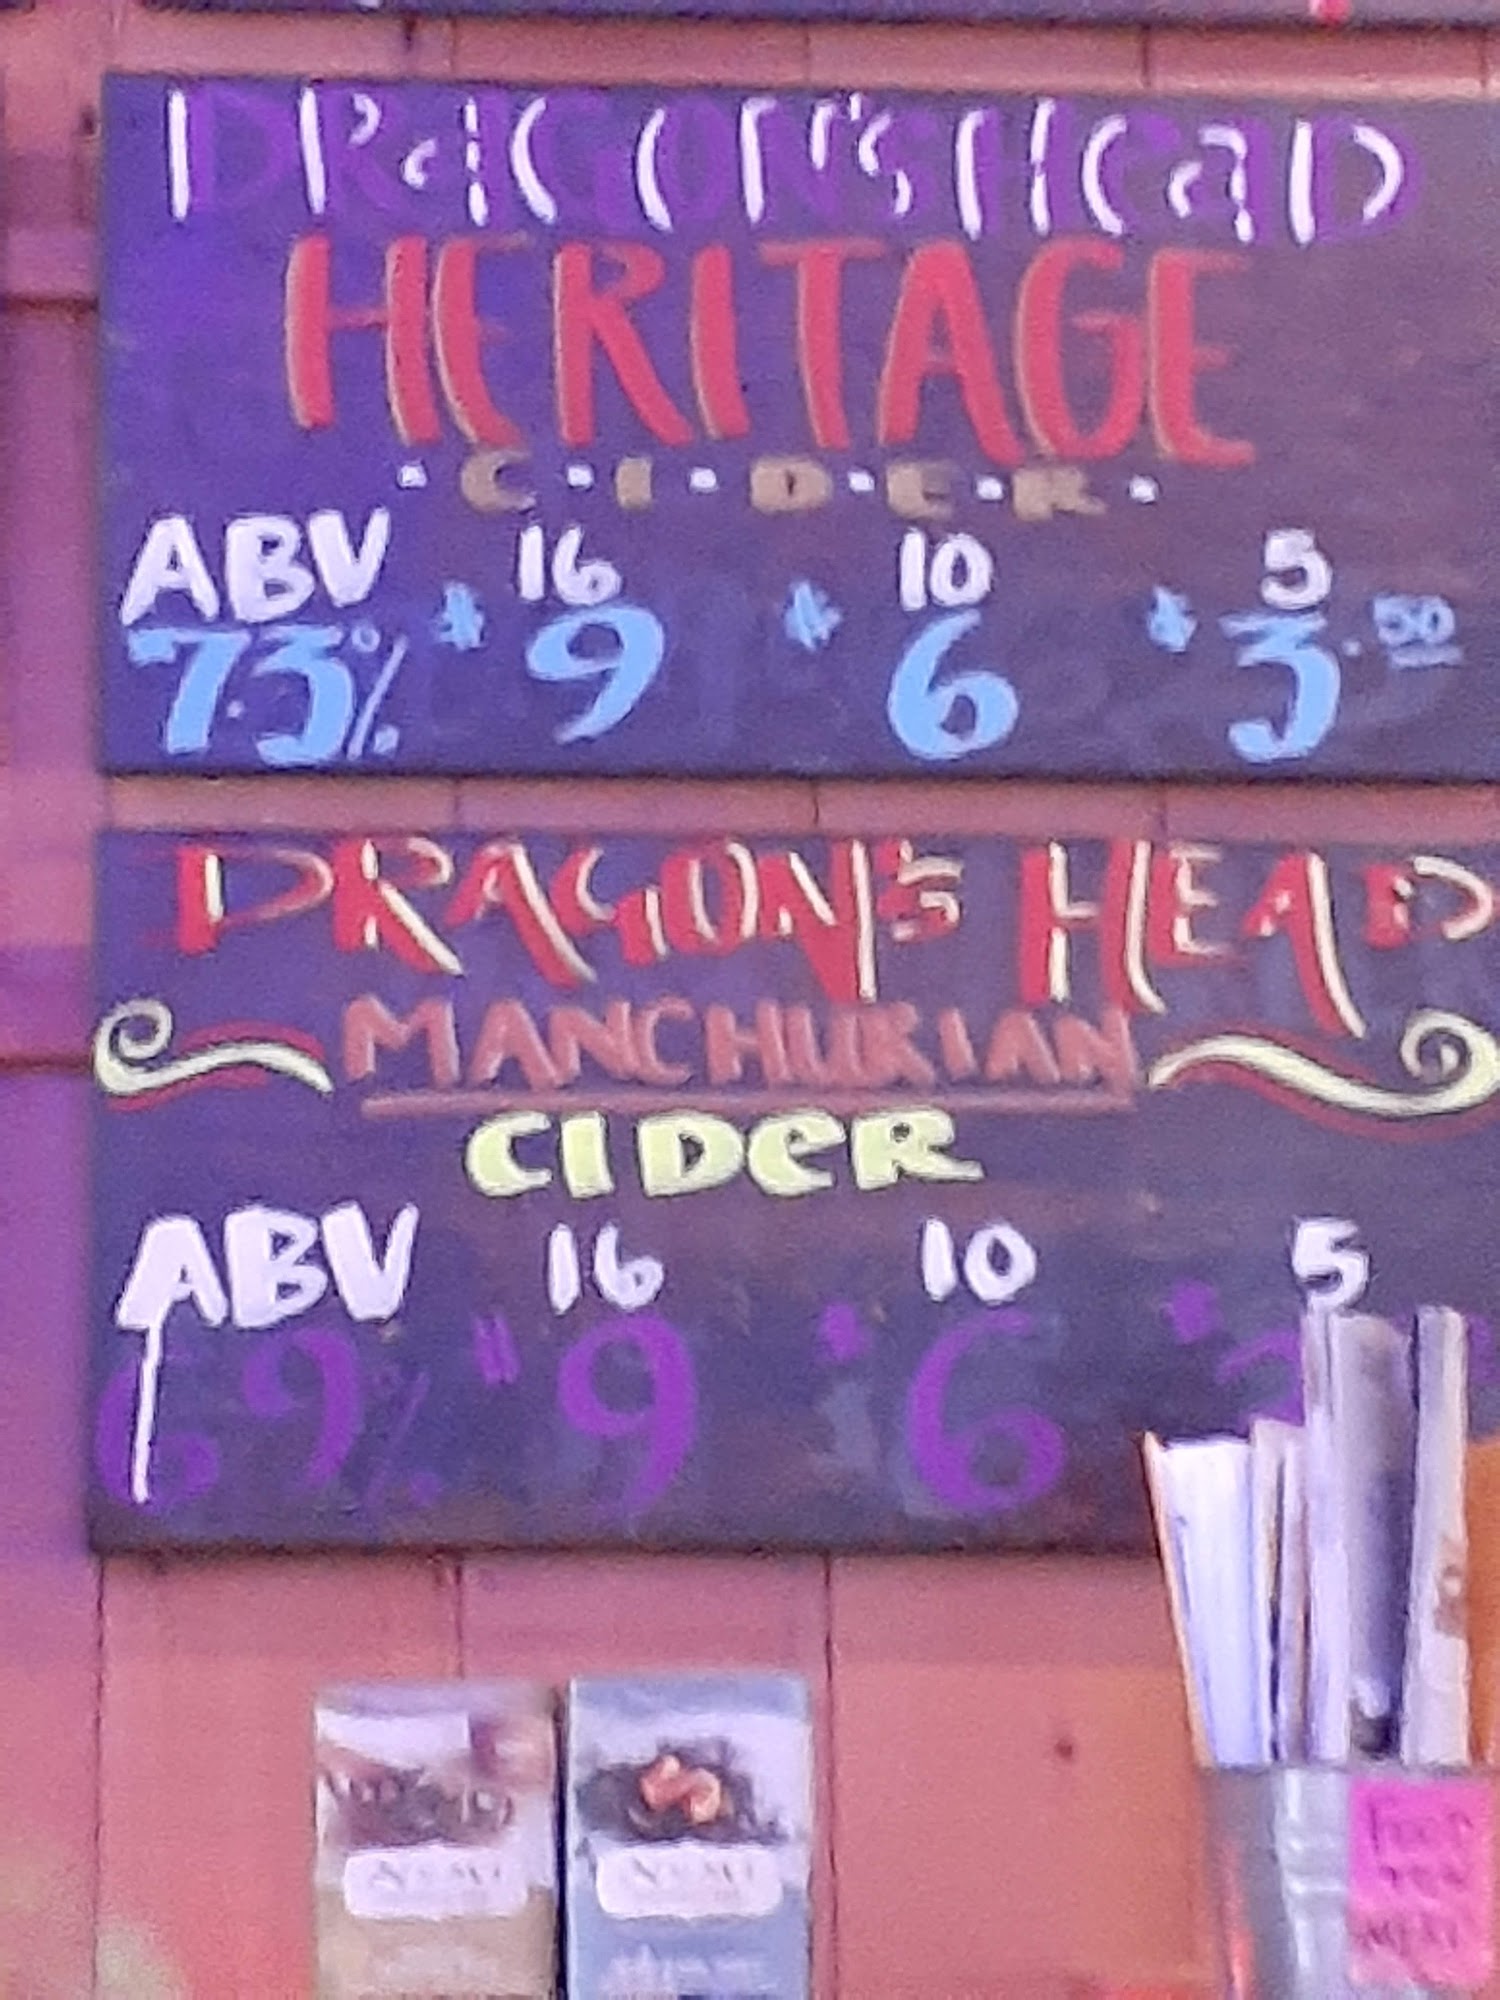 DRAGON'S HEAD
HERITAGE
· C · I · D · E · R ·
ABV 16 10 5
7.3% $9 $6 $3.50
DRAGON'S HEAD
MANCHURIAN
CIDER
ABV 16 10 5
6.9% $9 $6 $
FOOD
MENU